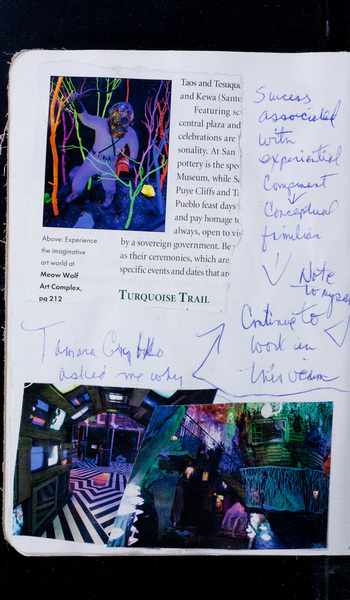 Taos and Tesuque
and Kewa (Santo
Featuring sc
central plaza and
celebrations are
sonality. At San
pottery is the spe
Museum, while Sa
Puye Cliffs and Ta
Pueblo feast days
and pay homage to
always, open to vis
by a sovereign government. Be
as their ceremonies, which are
specific events and dates that are
TURQUOISE TRAIL
Above: Experience
the imaginative
art world at
Meow Wolf
Art Complex,
pg 212
Success
associated
with
experiential
Component
Conceptual
familiar
Note
to myself
Continue to
work in
this vein
Tamara
asked me why